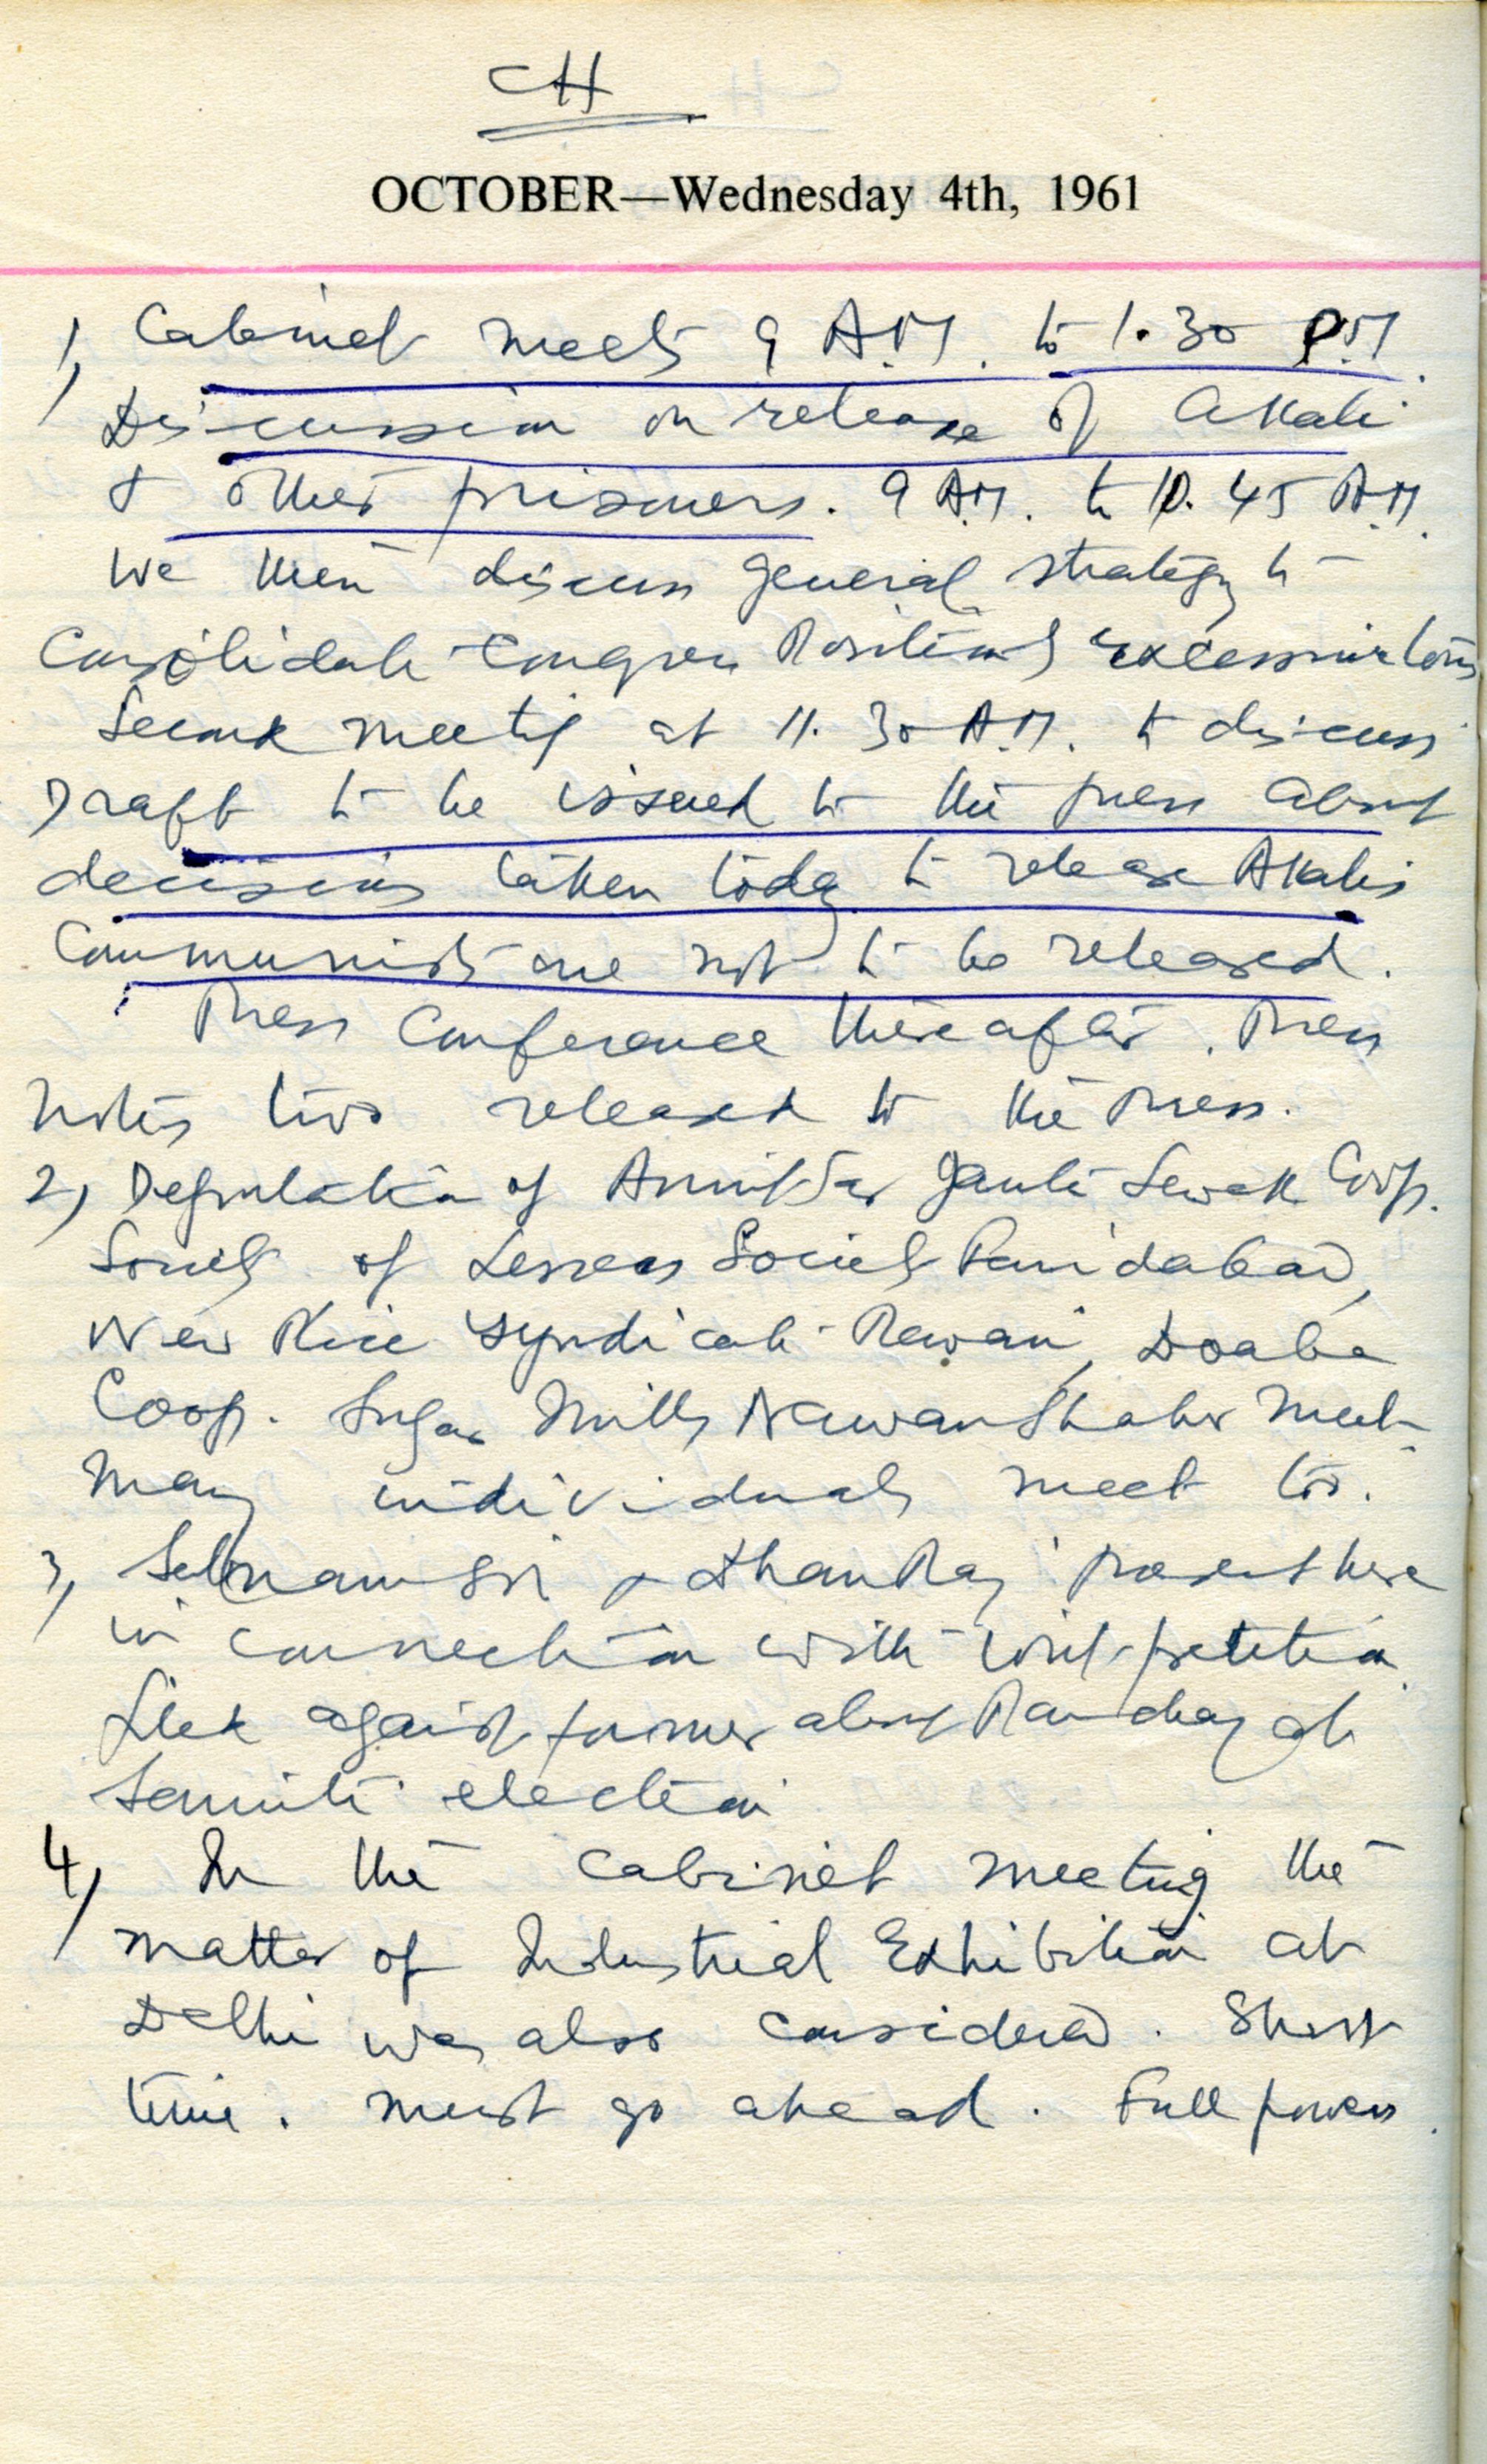 CH
OCTOBER—Wednesday 4th, 1961
1, Cabinet meets 9 A.M. to 1.30 P.M.
Discussion on release of Akali
& other prisoners. 9 A.M. to 10.45 A.M.
We then discuss general strategy to
Consolidate Congress Position &
Second meeting at 11.30 A.M. to discuss
Draft to be issued to the press about
decisions taken today to release Akalis
Communists are not to be released.
Press Conference thereafter. Press
notes two released to the Press.
2, Deputation of Amritsar Janta Sewak Coop.
Society of Lessees Society Faridabad,
New Rice Syndicate Rewari, Doaba
Coop. Sugar Mills Nawanshahr meet
Many individuals meet too.
3, & present here
in connection with writ petition
filed against former about Panchayat
Samiti election
4, In the Cabinet meeting the
matter of Industrial Exhibition at
Delhi was also considered. Short
time. Must go ahead. Full powers.